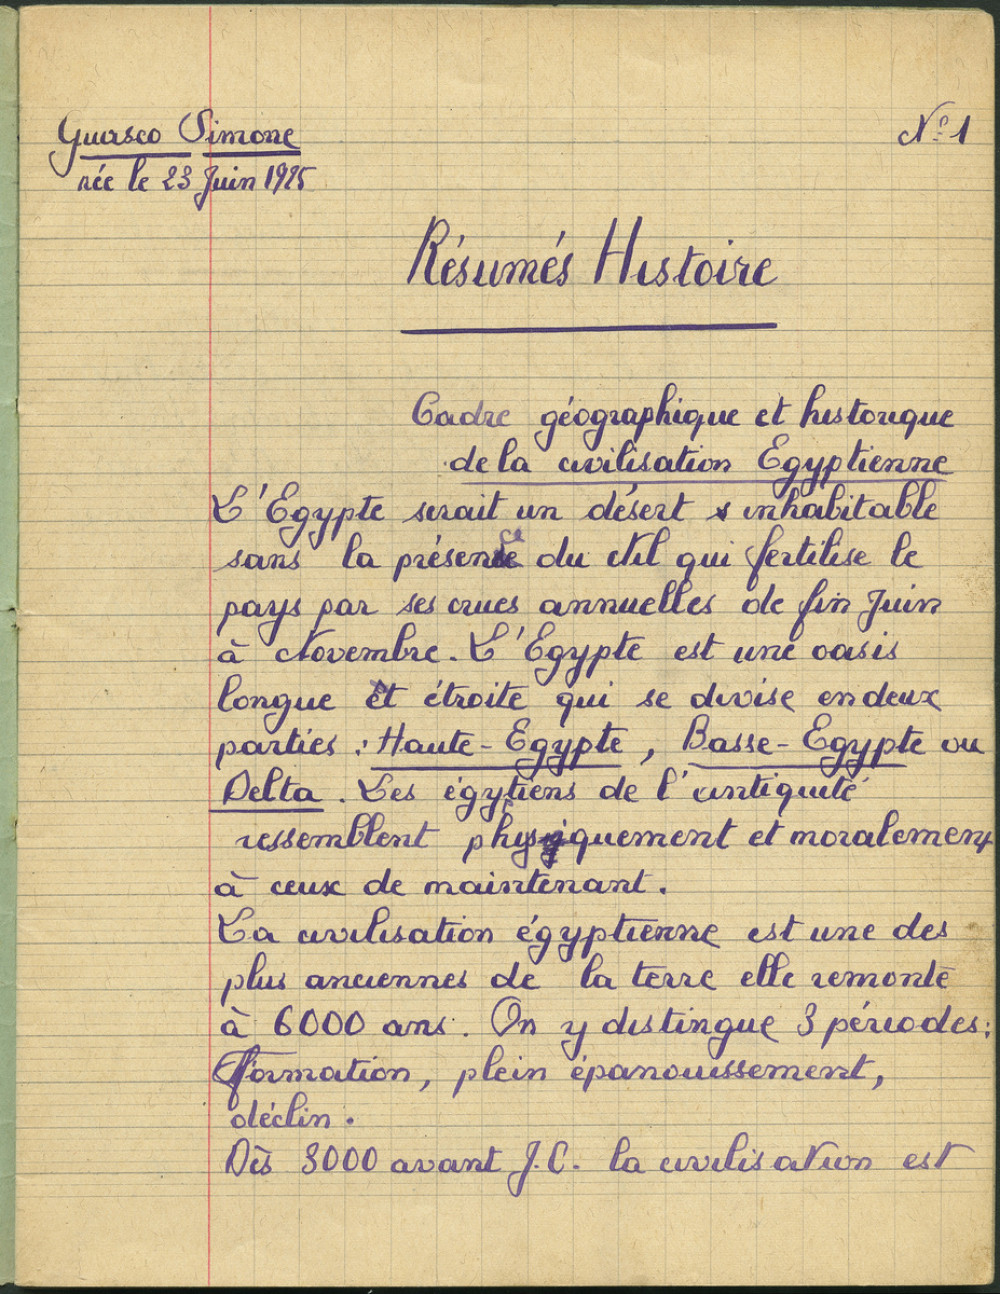 Guasco Simone
née le 23 Juin 1925
N° 1
Résumés Histoire
Cadre géographique et historique
de la civilisation Egyptienne
L'Egypte serait un désert inhabitable
sans la présence du Nil qui fertilise le
pays par ses crues annuelles de fin Juin
à Novembre. L'Egypte est une oasis
longue et étroite qui se divise en deux
parties : Haute-Egypte, Basse-Egypte ou
Delta. Les égyptiens de l'antiquité
ressemblent physiquement et moralement
à ceux de maintenant.
La civilisation égyptienne est une des
plus anciennes de la terre elle remonte
à 6000 ans. On y distingue 3 périodes:
Formation, plein épanouissement,
déclin.
Dès 3000 avant J.C. la civilisation est